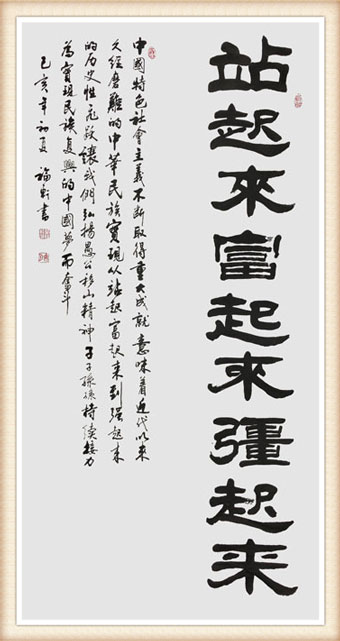 站起來富起來彊起来
中國特色社會主义不断取得重大成就意味着近代以来
久经磨難的中華民族實現从站起富起来到强起来
的历史性飛跃讓我們弘揚愚公移山精神子子孫孫持續接力
為實現民族复興的中國夢而奮斗
己亥年初夏 福 書